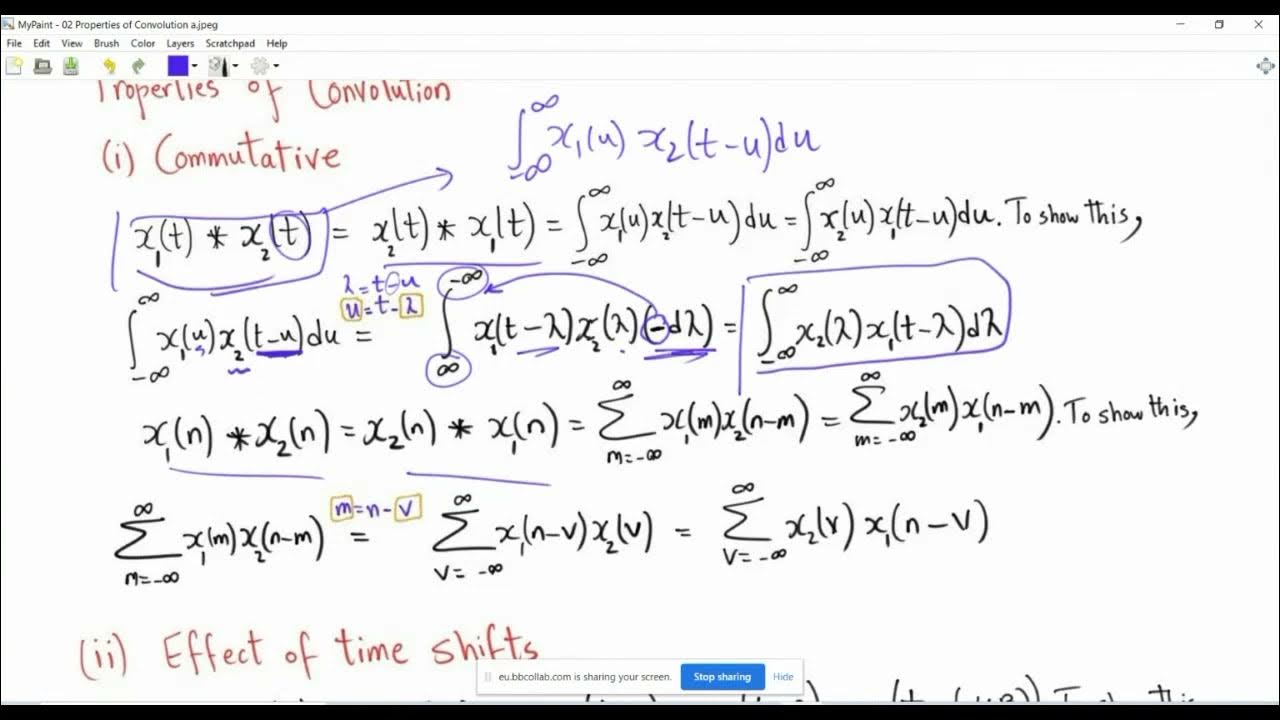 MyPaint - 02 Properties of Convolution a.jpeg
File Edit View Brush Color Layers Scratchpad Help
Properties of Convolution
(i) Commutative
∫_{-∞}^{∞} x₁(u) x₂(t-u)du
x₁(t) * x₂(t) = x₂(t) * x₁(t) = ∫_{-∞}^{∞} x₁(u)x₂(t-u)du = ∫_{-∞}^{∞} x₂(u)x₁(t-u)du. To show this,
λ=t-u
u=t-λ
∫_{-∞}^{∞} x₁(u)x₂(t-u)du = ∫_{∞}^{-∞} x₁(t-λ)x₂(λ)(-dλ) = ∫_{-∞}^{∞} x₂(λ)x₁(t-λ)dλ
x₁(n) * x₂(n) = x₂(n) * x₁(n) = ∑_{m=-∞}^{∞} x₁(m)x₂(n-m) = ∑_{m=-∞}^{∞} x₂(m)x₁(n-m). To show this,
m=n-v
∑_{m=-∞}^{∞} x₁(m)x₂(n-m) = ∑_{v=-∞}^{∞} x₁(n-v)x₂(v) = ∑_{v=-∞}^{∞} x₂(v) x₁(n-v)
(ii) Effect of time shifts
eu.bbcollab.com is sharing your screen. Stop sharing Hide